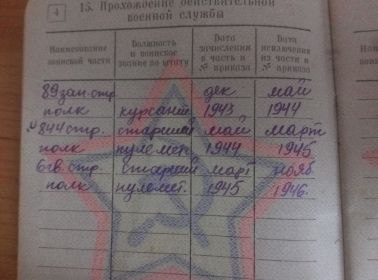 4
15. Прохождение действительной
военной службы
Наименование воинской части
Должность и воинское звание по штату
Дата зачисления в часть и № приказа
Дата исключения из части и № приказа
89 зап. стр. дек май
полк курсант 1943 1944
844 стр. старший май март
полк пулемет. 1944 1945
6 гв. стр. старший март нояб
полк пулемет. 1945 1946.